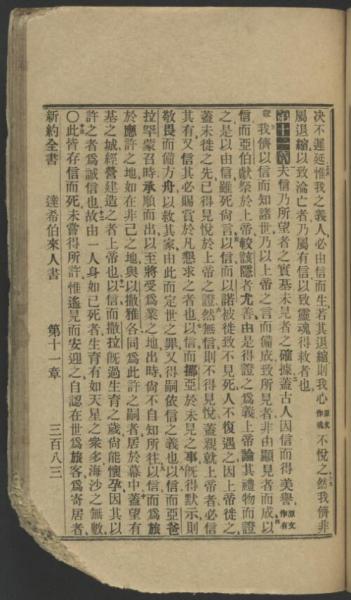 決不遲延惟我之義人必由信而生若其退縮則我心原文作魂不悅之然我儕非
屬退縮以致淪亡者乃屬有信以致靈魂得救者也
第十一章 夫信乃所望者之實基未見者之確據蓋古人因信而得美譽原文作有
證我儕以信而知諸世乃以上帝之言而備成致所見者非由顯見者而成以
信而亞伯獻祭於上帝較該隱者尤善由是得證之爲義上帝論其禮物而證
之是以由信雖死尙言以信而以諾被徙致不見死人不復遇之因上帝徙之
蓋未徙之先已得見悅於上帝之證然無信則不得見悅蓋親就上帝者必信
其有又信其必賜賞於凡懇求之者也以信而挪亞於未見之事既得默示則
敬畏而備方舟以救其家由此而定世之罪又得嗣依信之義也以信而亞爸
拉罕蒙召時承順而出以至將受爲業之地出時尙不自知所往以信而爲旅
於應許之地如在非己之地與以撒雅各同爲此許之嗣者居於幕中蓋望有
基之城經營建造之者上帝也以信而撒拉既過生育之歲尙能懷孕因其以
許之者爲誠信也故由一人身如已死者生育有如天星之衆多海沙之無數
〇此皆存信而死未嘗得所許惟遙見而安迎之自認在世爲旅客爲寄居者
新約全書 達希伯來人書 第十一章 三百八三